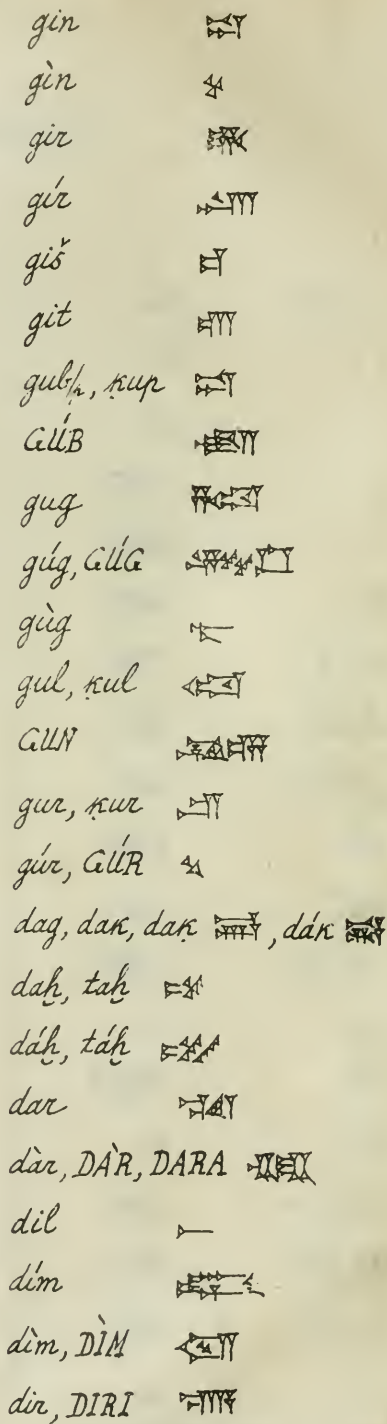 gin 𒁺
gìn 𒆳
gir 𒄫
gír 𒄈
giš 𒄑
git 𒆤
gub/p, ḳup 𒁺
GÚB
gug 𒍝𒄢
gúg, GÚG
gùg
gul, ḳul 𒄢
GUN 𒄘𒌦
gur, ḳur 𒄥
gúr, GÚR
dag, dak, daḳ 𒁖, dák
daḫ, taḫ
dáḫ, táḫ
dar 𒁯
dàr, DÀR, DARA 𒁰
dil 𒀸
dím 𒁶
dìm, DÌM
dir, DIRI 𒋛𒀀